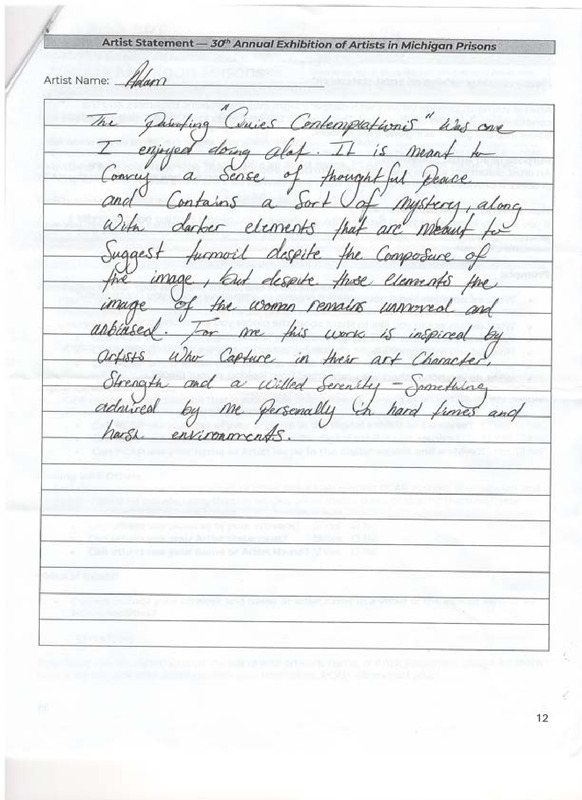 Artist Statement — 30th Annual Exhibition of Artists in Michigan Prisons
Artist Name: Adam
The Painting "Quies Contemplationis" was one
I enjoyed doing alot. It is meant to
Convey a sense of thoughtful peace
and contains a sort of mystery, along
with darker elements that are meant to
suggest turmoil despite the composure of
the image, but despite those elements the
image of the woman remains unmoved and
unbiased. For me this work is inspired by
artists who capture in their art character,
strength and a willed serenity - something
admired by me personally in hard times and
harsh environments.
12